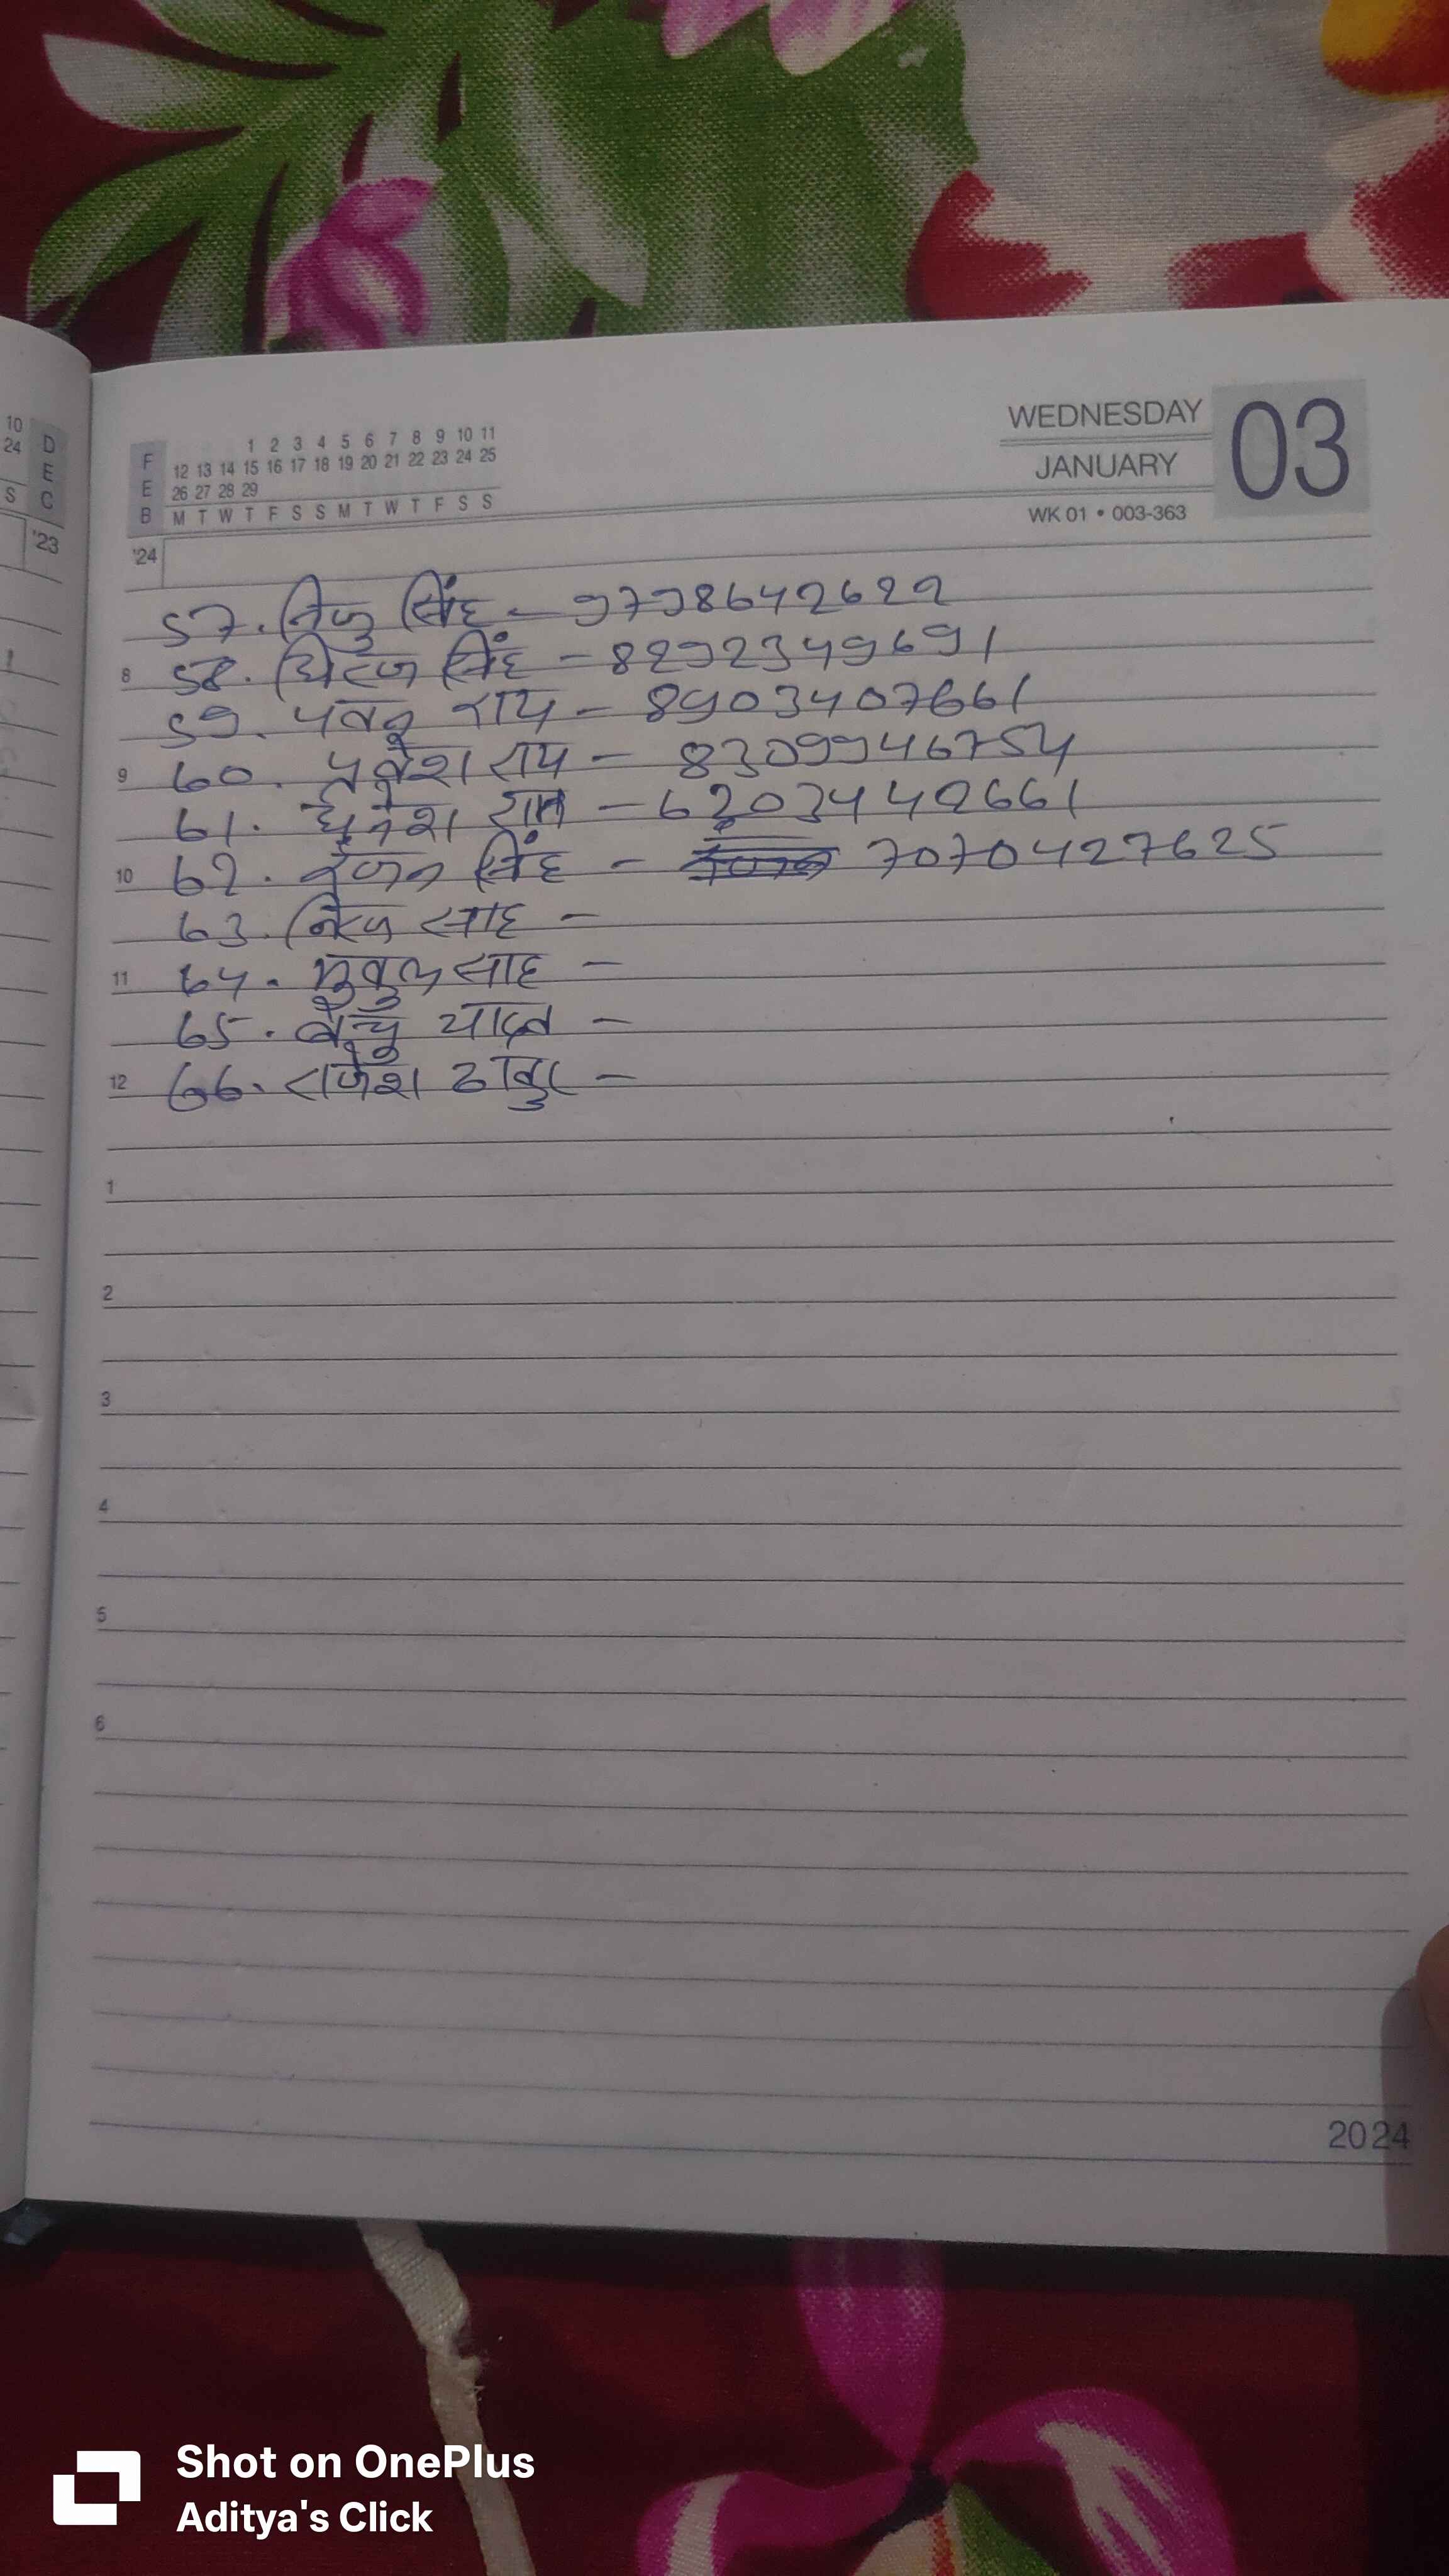 10
24 D
E
S C
'23
F 1 2 3 4 5 6 7 8 9 10 11
E 12 13 14 15 16 17 18 19 20 21 22 23 24 25
26 27 28 29
B M T W T F S S M T W T F S S
'24
WEDNESDAY
JANUARY
WK 01 • 003-363
03
57. सिंह - 9798642622
8 58. धिरज सिंह - 8292349691
59. राय - 8903407661
9 60. राय - 8309946754
61. - 6203442661
10 62. सिंह - 7070427625
63. साह -
11 64. साह -
65. यादव -
12 66. राजेश ठाकुर -
1
2
3
4
5
6
2024
Shot on OnePlus
Aditya's Click